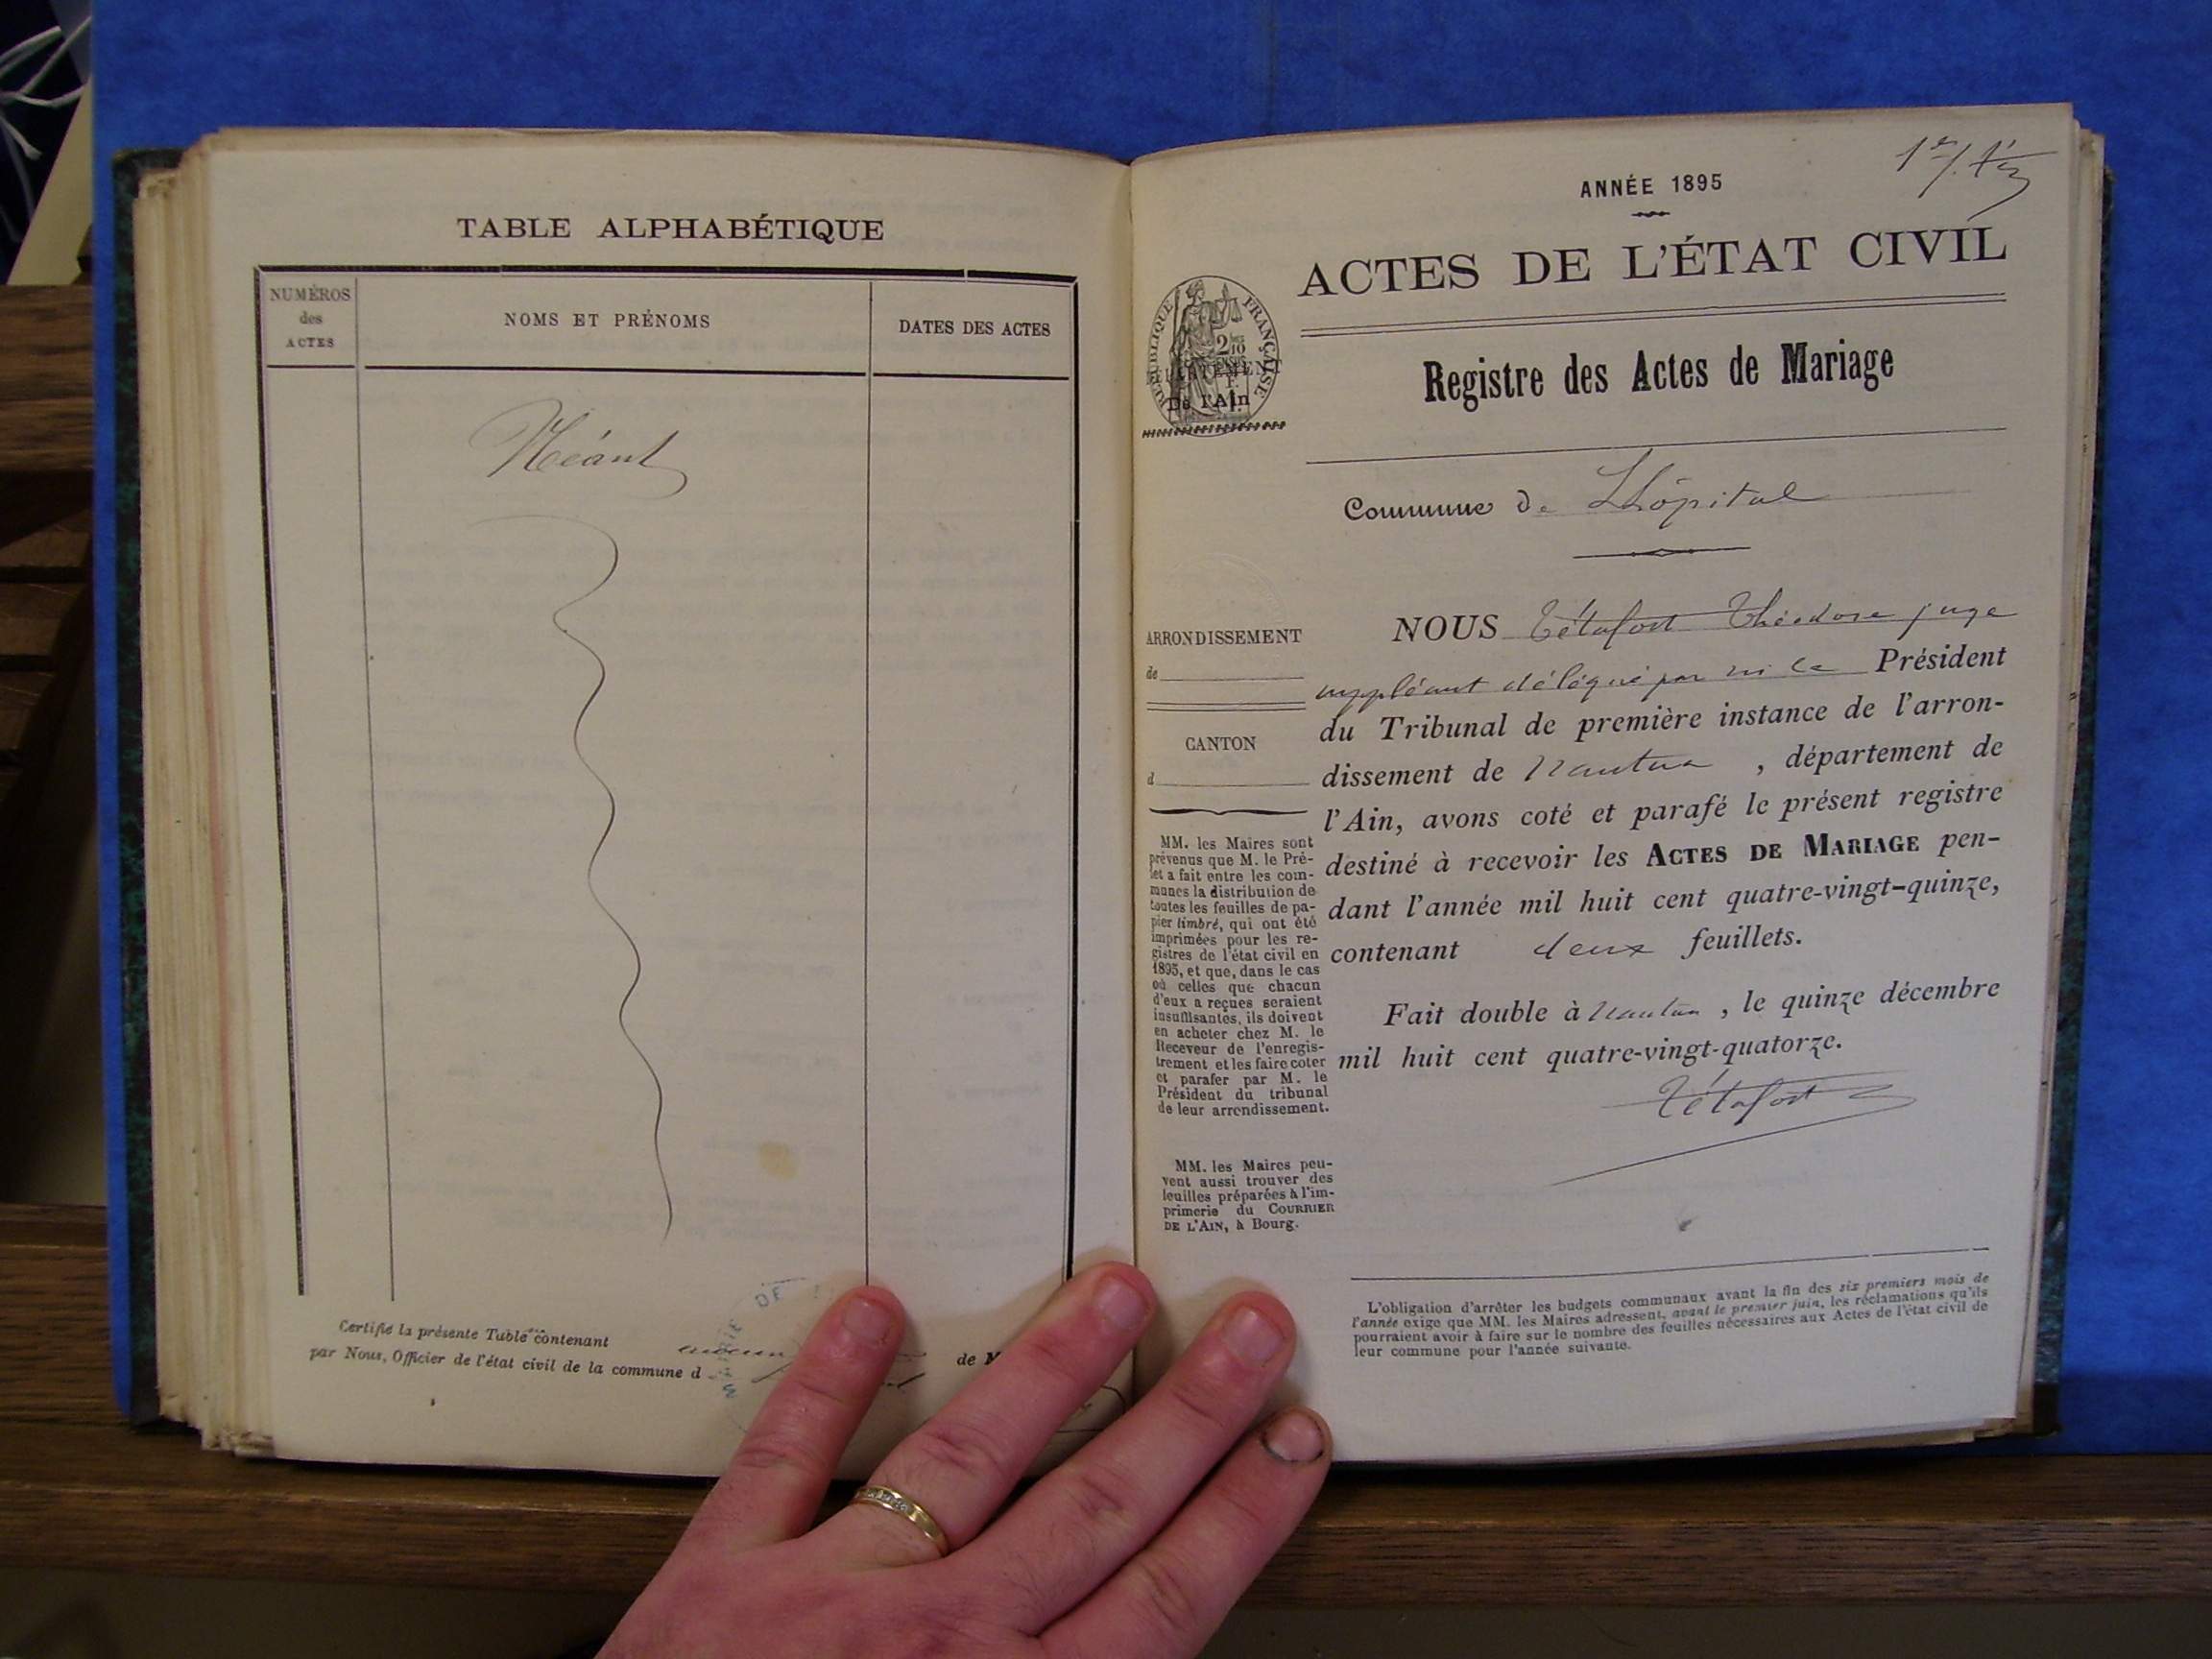 TABLE ALPHABÉTIQUE
NUMÉROS
des
ACTES
NOMS ET PRÉNOMS
DATES DES ACTES
Néant
Certifié la présente Table contenant aucun de
par Nous, Officier de l'état civil de la commune d
MAIRIE DE
ANNÉE 1895
ACTES DE L'ÉTAT CIVIL
RÉPUBLIQUE FRANÇAISE
DÉPARTEMENT
De l'Ain
Registre des Actes de Mariage
Commune de Lhôpital
ARRONDISSEMENT
de
CANTON
d
MM. les Maires sont
prévenus que M. le Pré-
fet a fait entre les com-
munes la distribution de
toutes les feuilles de pa-
pier timbré, qui ont été
imprimées pour les re-
gistres de l'état civil en
1895, et que, dans le cas
où celles que chacun
d'eux a reçues seraient
insuffisantes, ils doivent
en acheter chez M. le
Receveur de l'enregis-
trement et les faire coter
et parafer par M. le
Président du tribunal
de leur arrondissement.
MM. les Maires peu-
vent aussi trouver des
feuilles préparées à l'im-
primerie du COURRIER
DE L'AIN, à Bourg.
NOUS Tétafort Théodore juge
suppléant délégué par M. le Président
du Tribunal de première instance de l'arron-
dissement de Nantua, département de
l'Ain, avons coté et parafé le présent registre
destiné à recevoir les ACTES DE MARIAGE pen-
dant l'année mil huit cent quatre-vingt-quinze,
contenant deux feuillets.
Fait double à Nantua, le quinze décembre
mil huit cent quatre-vingt-quatorze.
Tétafort
L'obligation d'arrêter les budgets communaux avant la fin des six premiers mois de
l'année exige que MM. les Maires adressent, avant le premier juin, les réclamations qu'ils
pourraient avoir à faire sur le nombre des feuilles nécessaires aux Actes de l'état civil de
leur commune pour l'année suivante.